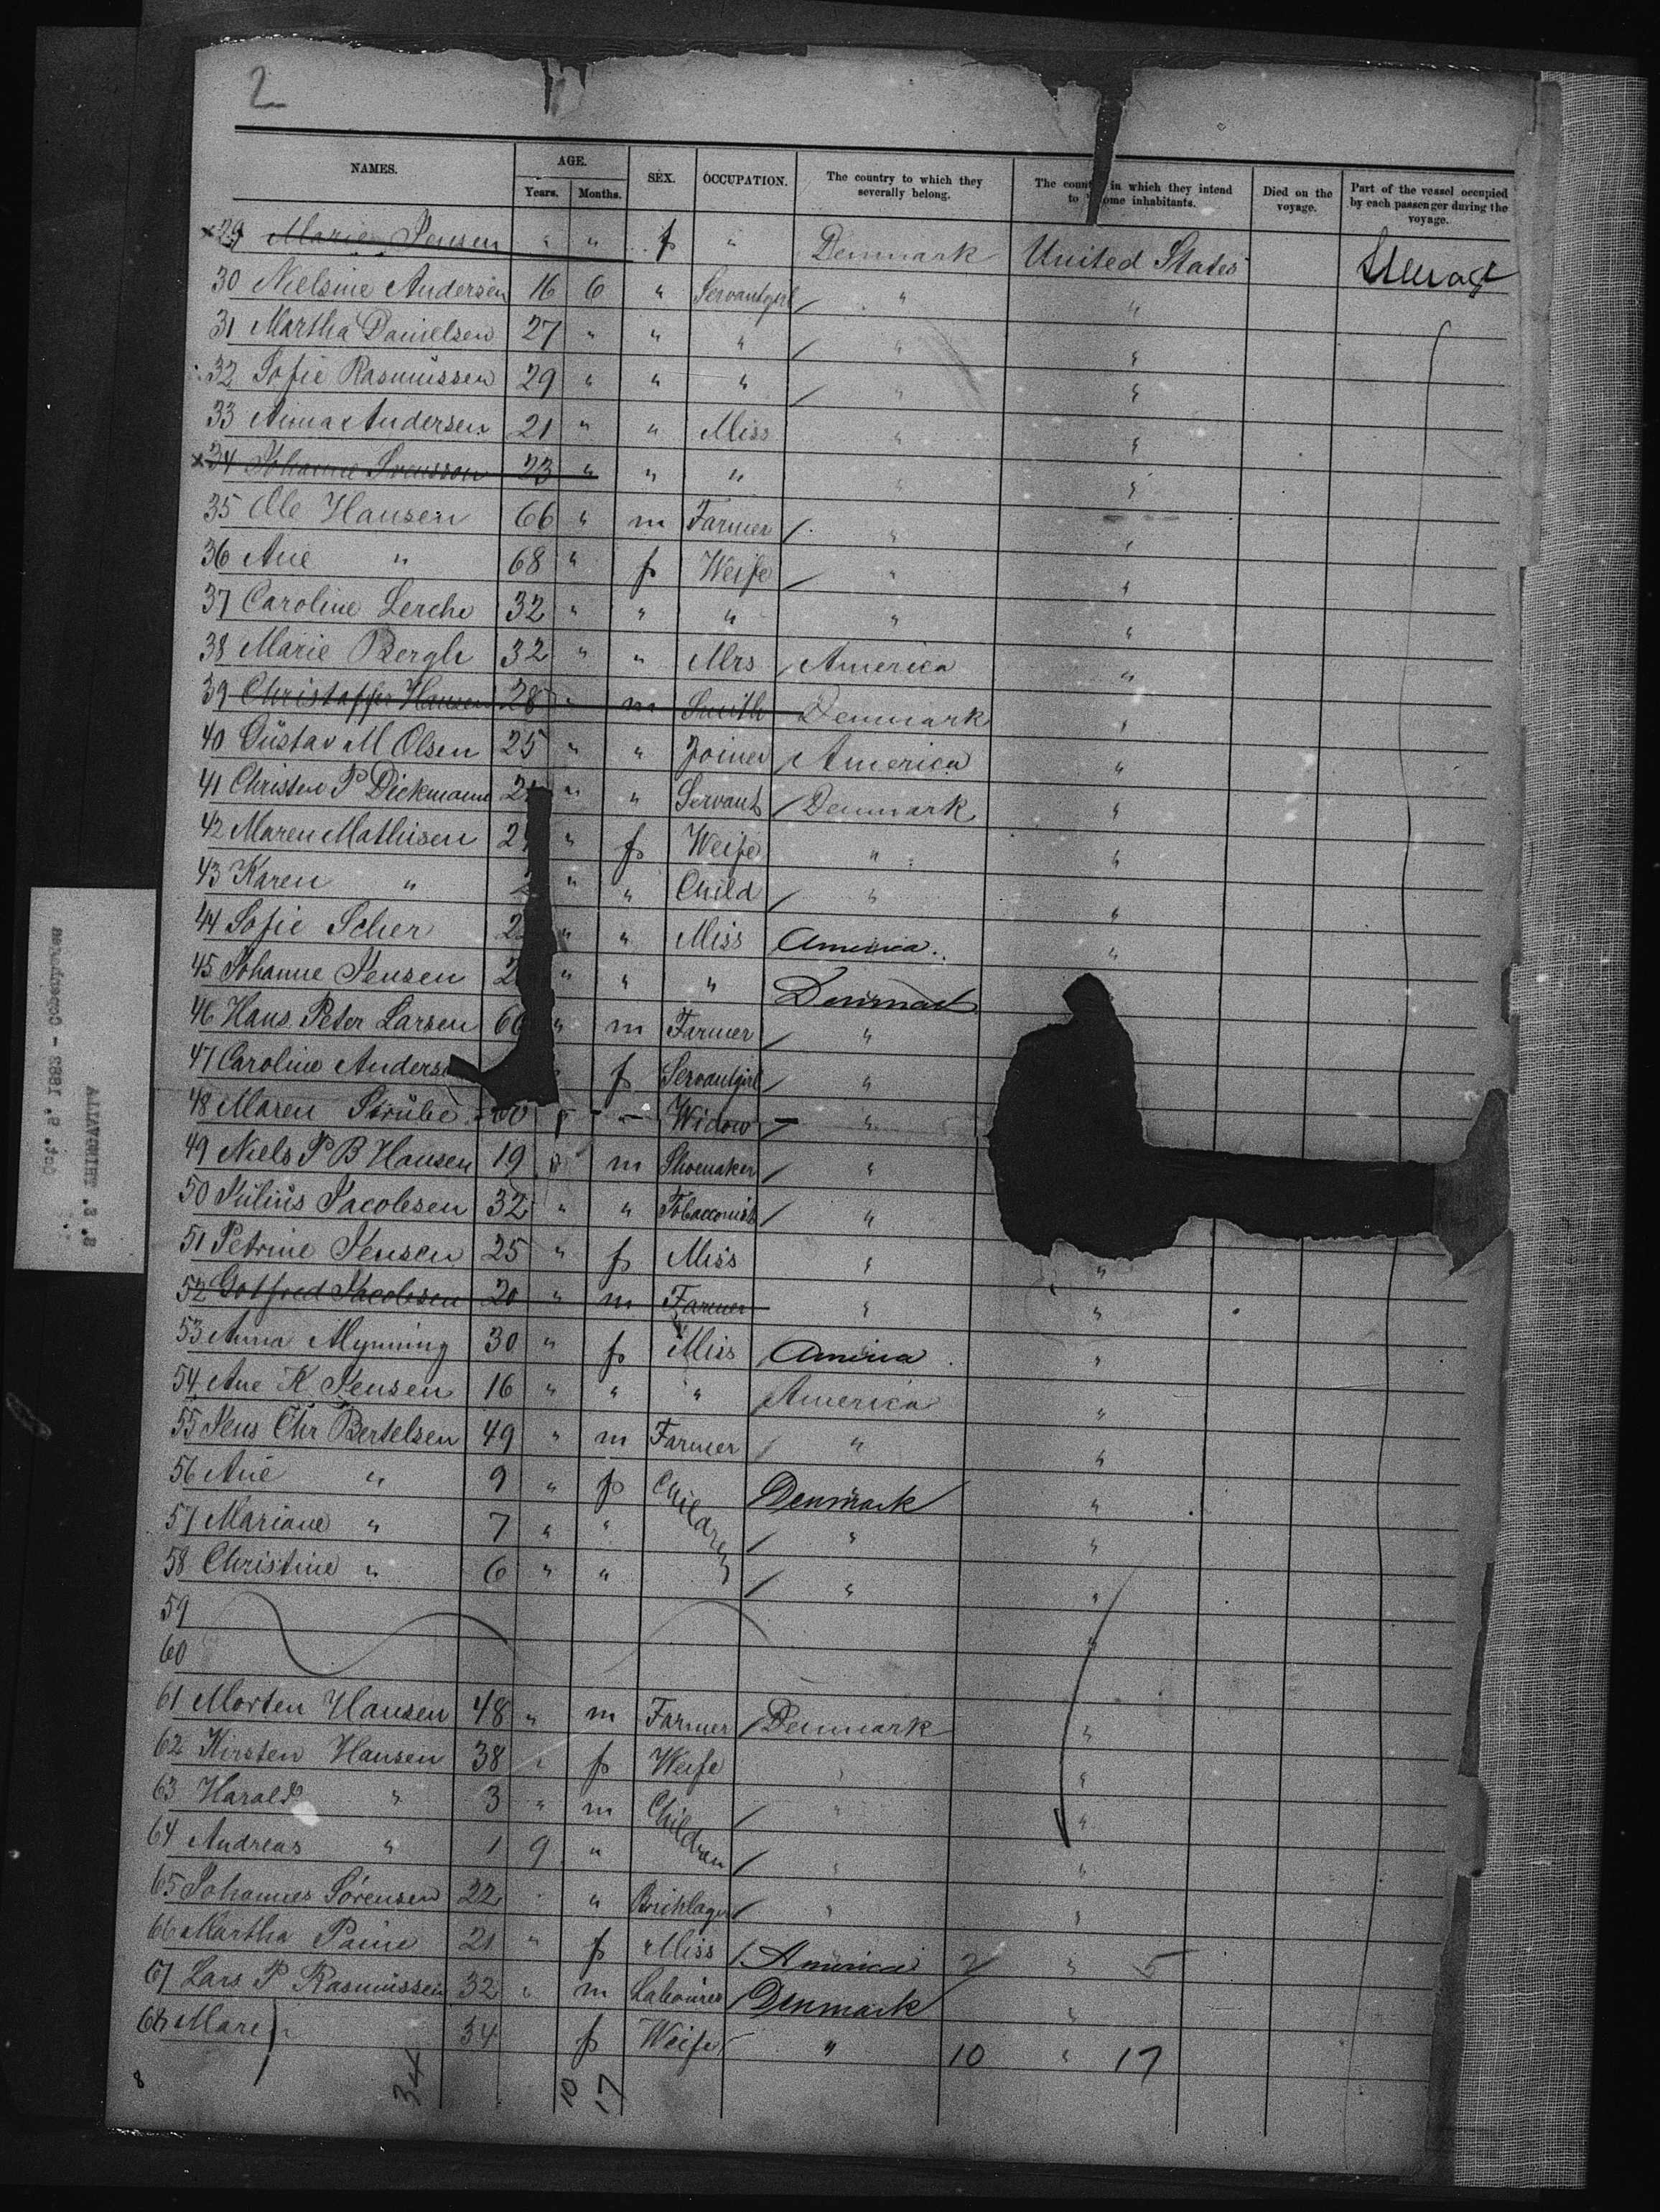 2
NAMES. AGE. Years. Months. SEX. OCCUPATION. The country to which they severally belong. The country in which they intend to become inhabitants. Died on the voyage. Part of the vessel occupied by each passenger during the voyage.
x 29 Marie Jensen " " f " Denmark United States Steerage
30 Nielsine Andersen 16 6 " Servantgirl / " "
31 Martha Danielsen 27 " " " / " "
32 Sofie Rasmussen 29 " " " / " "
33 Anna Andersen 21 " " Miss " "
x 34 Johanne Svensson 23 " " " " "
35 Ole Hansen 66 " m Farmer / " "
36 Ane " 68 " f Weife / " "
37 Caroline Lerche 32 " " " " "
38 Marie Bergh 32 " " Mrs / America "
39 Christoffer Hansen 28 " m Smith Denmark "
40 Gustav M Olsen 25 " " Joiner / America "
41 Christen P Dickmann 2 " " Servant / Denmark "
42 Maren Mathisen 2 " f Weife " "
43 Karen " " " Child / " "
44 Sofie Scher 2 " " Miss America "
45 Johanne Jensen 2 " " " Denmark
46 Hans Peter Larsen 6 " m Farmer / "
47 Caroline Anders f Servantgirl / "
48 Maren Strübe - - Widow - "
49 Niels P B Hansen 19 m Shoemaker / "
50 Julius Jacobsen 32 " " Tobacconist / "
51 Petrine Jensen 25 " f Miss " "
52 Gotfred Jacobsen 20 " m Farmer " "
53 Anna Mynning 30 " f Miss America "
54 Ane K Jensen 16 " " " America "
55 Jens Chr Bertelsen 49 " m Farmer / " "
56 Ane " 9 " f Children Denmark "
57 Mariane " 7 " " / " "
58 Christine " 6 " " / " "
59 "
60
61 Morten Hansen 48 " m Farmer / Denmark "
62 Kirsten Hansen 38 " f Weife " "
63 Harald " 3 " m Children / " "
64 Andreas " 1 9 " / " "
65 Johannes Sörensen 22 " " Bricklager / " "
66 Martha Paine 21 " f Miss / America 2 " 5
67 Lars P Rasmussen 32 " m Labourer / Denmark "
68 Maren 34 f Weife / " 10 " 17
8 34 10 17
S. S. THINGVALLA
Oct. 9, 1883 - Copenhagen